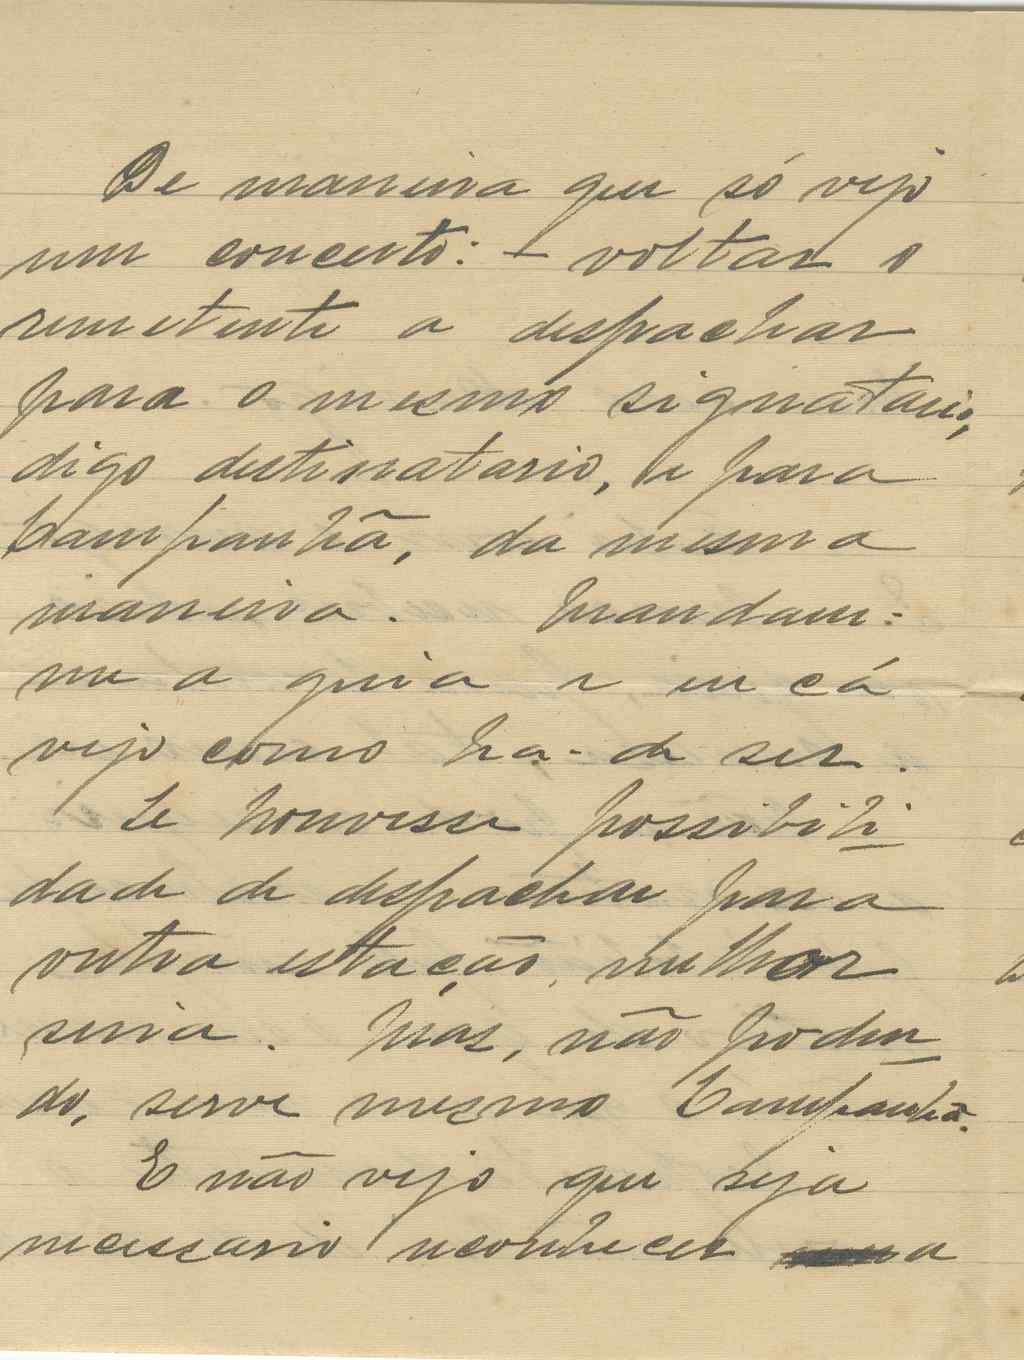 De maneira que só vejo
um concerto: — voltar o
remetente a despachar
para o mesmo signatario,
digo destinatario, e para
Campanhã, da mesma
maneira. Mandam=
me a guia e eu cá
vejo como ha-de ser.
Se houvesse possibili
dade de despachar para
outra estação, melhor
seria. Mas, não poden
do, serve mesmo Campanhã.
E não vejo que seja
necessario reconhecer a